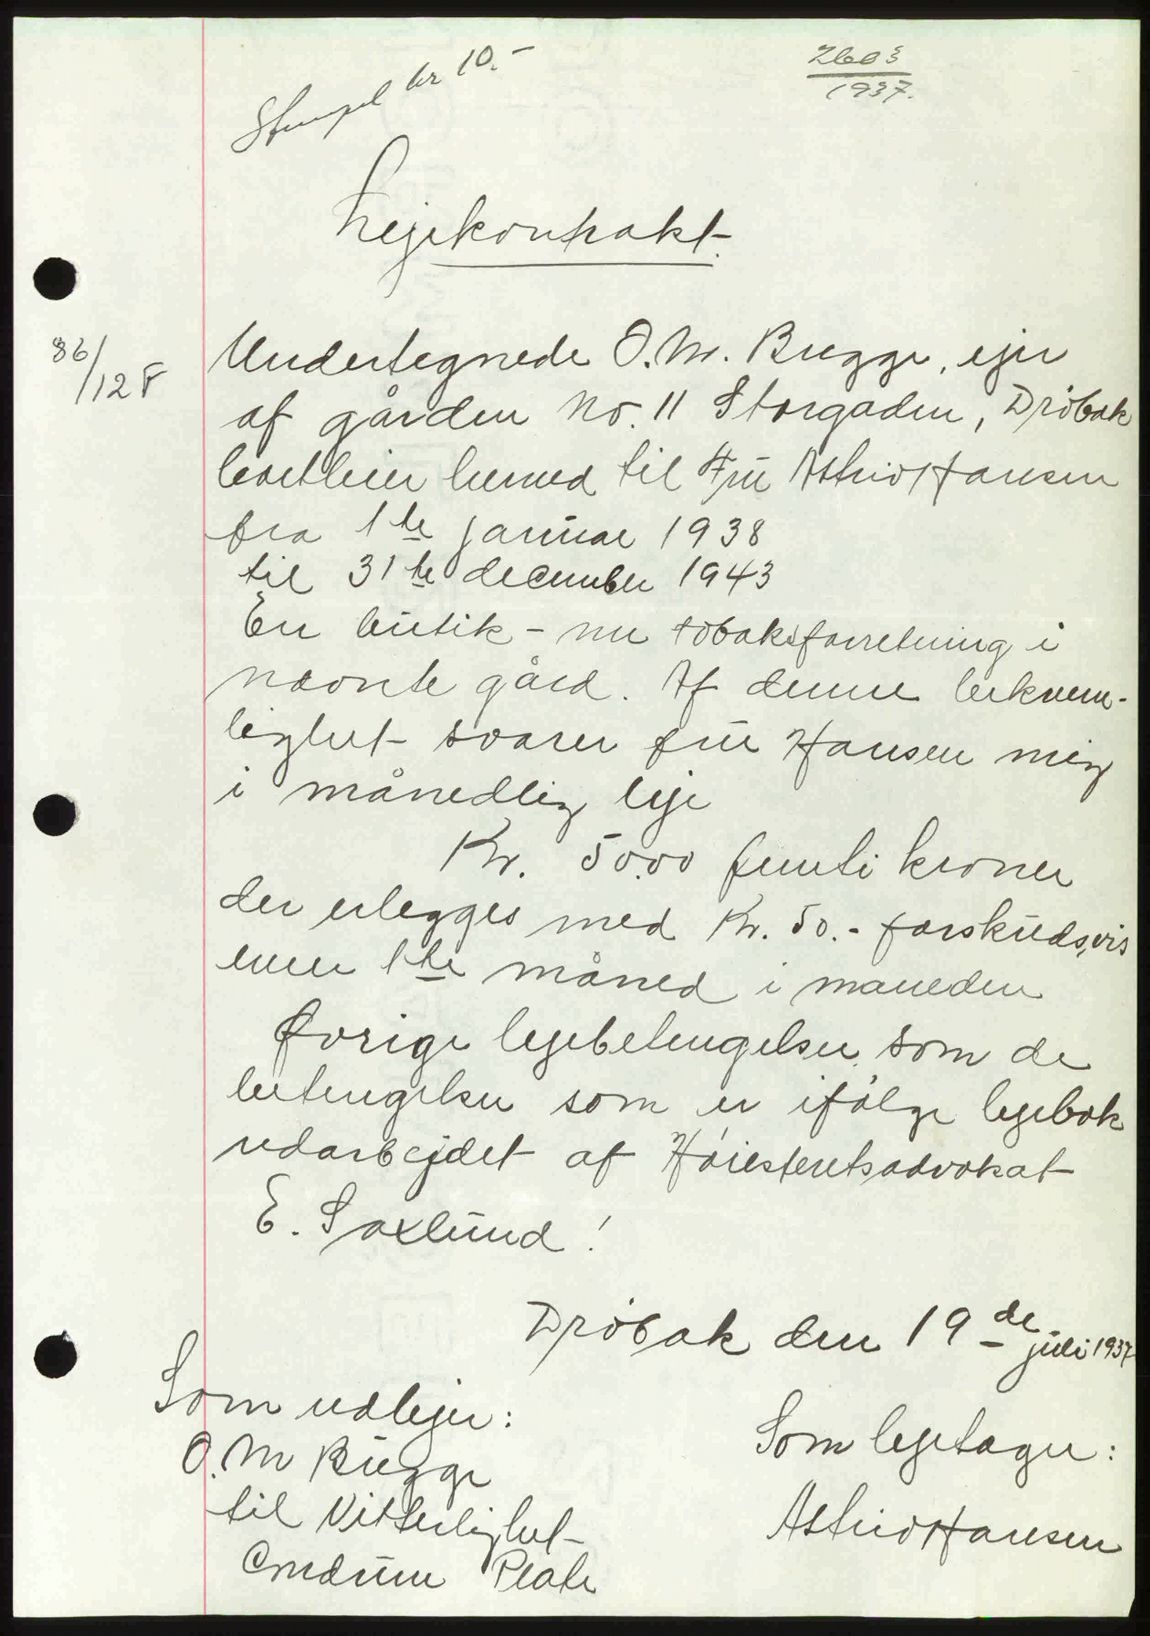 Stempel kr 10.-
2603
1937.
Lejekontrakt.
86/12 F
Undertegnede O. M. Bugge, ejer
af gården no. 11 Storgaden, Drøbak
bortleier herved til Fru Astrid Hansen
fra 1te januar 1938
til 31te december 1943
En butik - nu tobaksforretning i
nævnte gård. Af denne bekvem-
lighet svarer fru Hansen mig
i månedlig leje
Kr. 50.00 femti kroner
der erlegges med Kr. 50.- forskudsvis
1te måned i maneden
Øvrige lejebetingelser som de
betingelser som er ifølge lejebok
udarbejdet af Høiesteretsadvokat
E. Saxlund!
Drøbak den 19de juli 1937
Som udlejer:
O. M Bugge
Som lejetager:
Astrid Hansen
til Vitterlighet